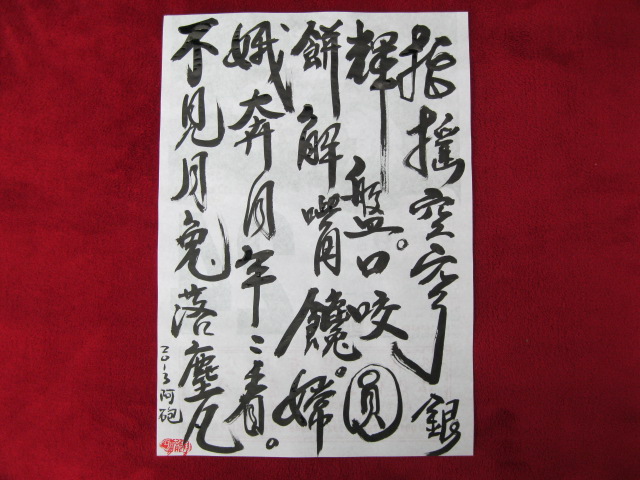 指摇空穹銀
輝盤。口咬圓
餅解嘴饞。嫦
娥奔月年々看。
不見月兔落塵凡
2013阿砲